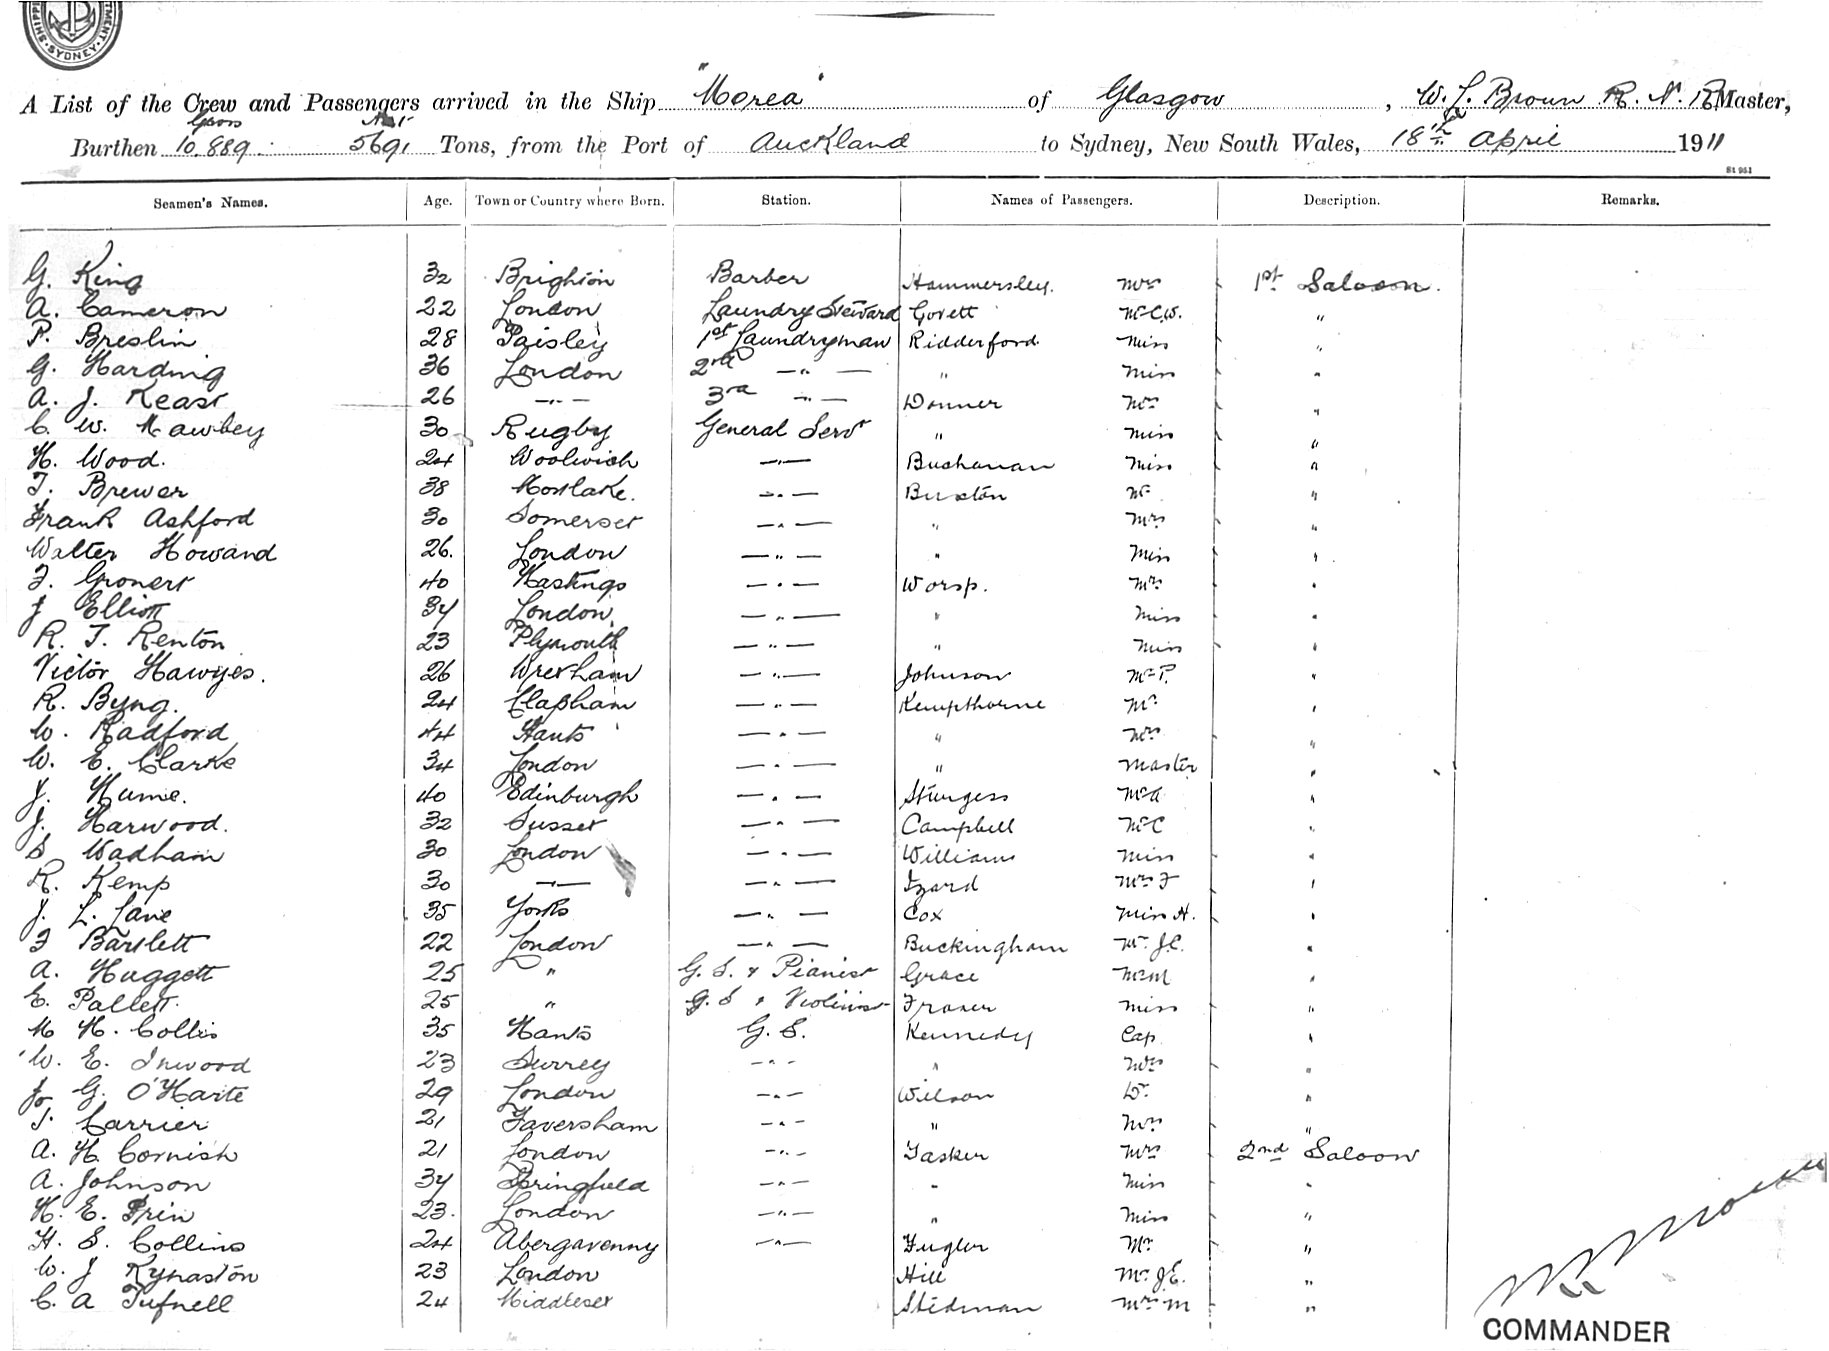 SYDNEY
A List of the Crew and Passengers arrived in the Ship "Morea" of Glasgow, W. L. Brown R. N. R. Master,
Gross Net
Burthen 10.889 5691 Tons, from the Port of Auckland to Sydney, New South Wales, 18th April 1911
St 951
Seamen's Names. Age. Town or Country where Born. Station. Names of Passengers. Description. Remarks.
G. King 32 Brighton Barber Hammersley. Mrs 1st Saloon.
A. Cameron 22 London Laundry Steward Govett Mr C.W. "
P. Breslin 28 Paisley 1st Laundryman Ridderford Miss "
G. Harding 36 London 2nd —"— " Miss "
A. J. Keast 26 —"— 3rd —"— Donner Mrs "
C. W. Mawbey 30 Rugby General Servt " Miss "
H. Wood. 24 Woolwich —"— Buchanan Miss "
T. Brewer 38 Mortlake. —"— Buxton Mr "
Frank Ashford 30 Somerset —"— " Mrs "
Walter Howard 26. London —"— " Miss "
F. Gronert 40 Hastings —"— Worsp. Mrs "
J Elliott 34 London —"— " Miss "
R. T. Renton 23 Plymouth —"— " Miss "
Victor Hawyes. 26 Wrexham —"— Johnson Mr P. "
R. Byng. 24 Clapham —"— Kempthorne Mr "
W. Radford 44 Hants —"— " Mrs "
W. E. Clarke 34 London —"— " Master "
J. Hume. 40 Edinburgh —"— Sturgess Mr A "
J. Harwood. 32 Sussex —"— Campbell Mr C "
S Wadham 30 London —"— Williams Miss "
R. Kemp 30 —"— —"— Izard Mrs F "
J. L. Lane 35 Yorks —"— Cox Miss H. "
F Bartlett 22 London —"— Buckingham Mr. J.C. "
A. Huggett 25 " G. S. & Pianist Grace Mr M "
E. Pallett. 25 " G. S & Violinist Fraser Miss "
M H. Collis 35 Hants G. S. Kennedy Cap "
W. E. Inwood 23 Surrey —"— " Mrs "
G. O'Harte 29 London —"— Wilson Dr. "
T. Carrier 21 Faversham —"— " Mrs "
A. H. Cornish 21 London —"— Tasker Mrs 2nd Saloon
A. Johnson 34 Springfield —"— " Miss "
H. E. Prin 23. London —"— " Miss "
H. S. Collins 24 Abergavenny —"— Fugler Mr "
W. J Kynaston 23 London Hill Mr. J.E. "
C. A Tufnell 24 Middlesex Stedman Mrs M "
COMMANDER